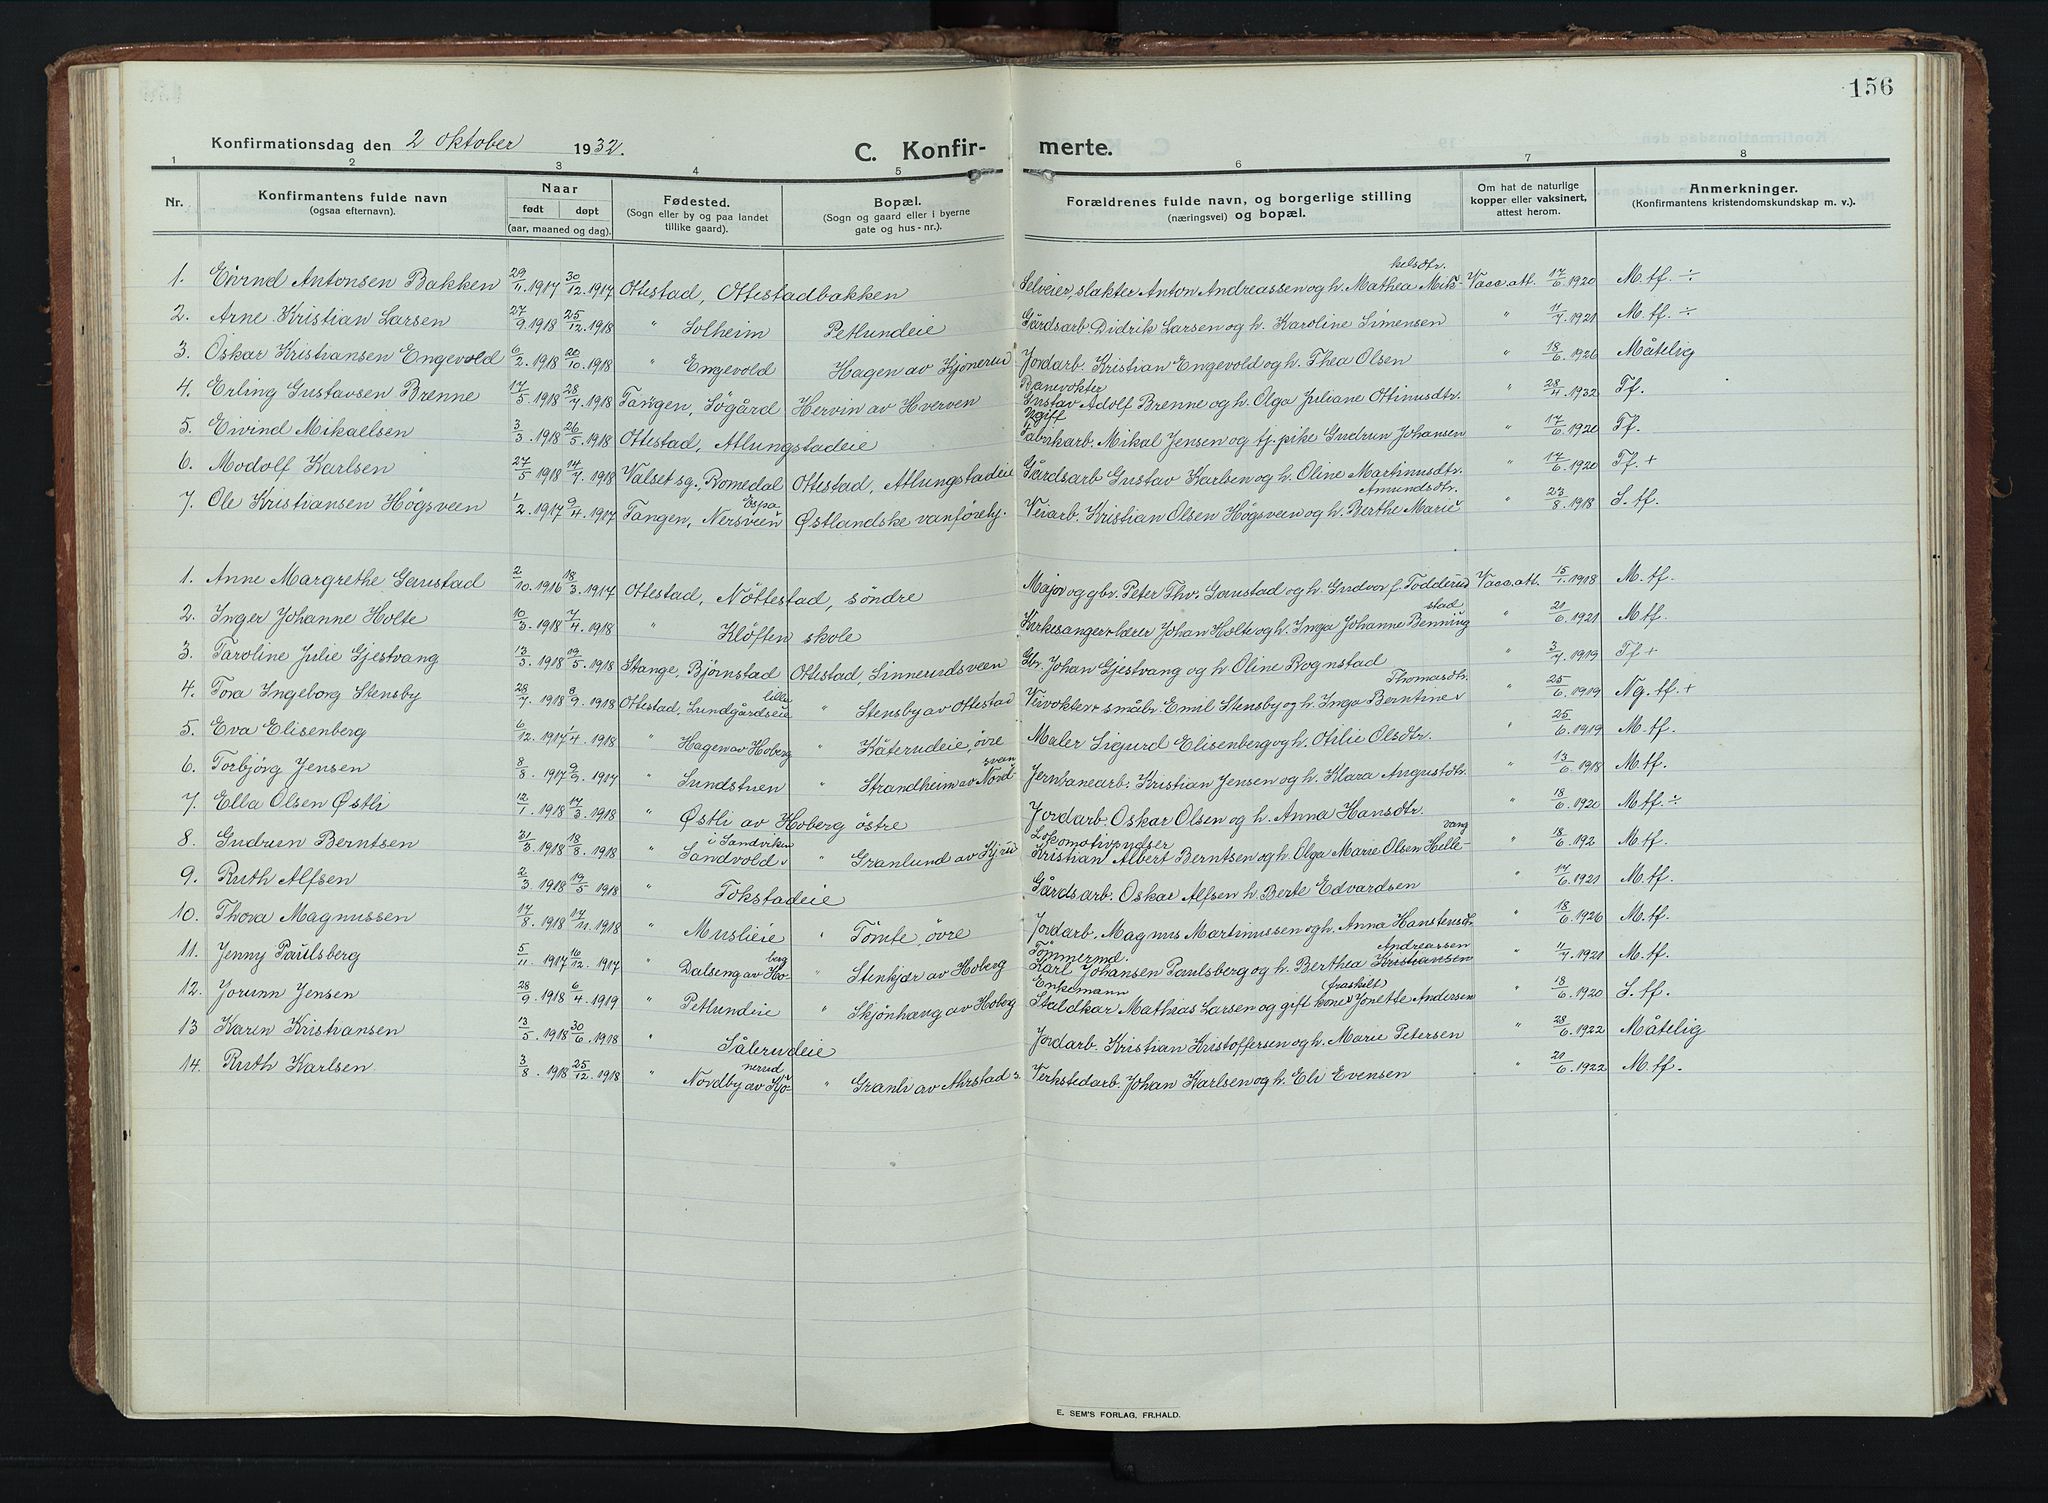 156
Konfirmationsdag den 2 oktober 1932.
C. Konfir- merte.
1 2 3 4 5 6 7 8
Nr. Konfirmantens fulde navn (ogsaa efternavn). Naar født døpt (aar, maaned og dag). Fødested. (Sogn eller by og paa landet tillike gaard). Bopæl. (Sogn og gaard eller i byerne gate og hus-nr.). Forældrenes fulde navn, og borgerlige stilling (næringsvei) og bopæl. Om hat de naturlige kopper eller vaksinert, attest herom. Anmerkninger. (Konfirmantens kristendomskundskap m. v.).
1. Eivind Antonsen Bakken 29/11.1917 30/12.1917 Ottestad, Ottestadbakken Selveier, slakter Anton Andreassen og h. Mathea Mikkelsdtr. Vacc. att. 17/6 1920 M. tf. ÷
2. Arne Kristian Larsen 27/9.1918 25/12.1918 " Solheim Petlundeie Gårdsarb. Didrik Larsen og h. Karoline Simensen " 11/7.1921 M. tf. ÷
3. Oskar Kristiansen Engevold 6/2.1918 20/10.1918 " Engevold Hagen av Hjønerud Jordarb. Kristian Engevold og h. Thea Olsen " 18/6.1926 Måtelig
4. Erling Gustavsen Brenne 17/5.1918 28/7.1918 Tangen, Søgård Hervin av Hverven Banevokter Gustav Adolf Brenne og h. Olga Juliane Ottinusdtr. " 28/4.1932 Tf.
5. Eivind Mikaelsen 3/3.1918 26/5.1918 Ottestad, Atlungstadeie Ugift Fabrikarb. Mikal Jensen og tj. pike Gudrun Johansen " 17/6.1920 Tf.
6. Modolf Karlsen 27/5.1918 14/7.1918 Valset sg., Romedal Ottestad, Atlungstadeie Gårdsarb Gustav Karlsen og h. Oline Martinusdtr. " 17/6.1920 Tf. +
7. Ole Kristiansen Høgsveen 1/2.1917 9/4.1917 Tangen, Nersveen Espa Østlandske vanføreby. Veiarb. Kristian Olsen Høgsveen og h. Berthe Marie Amundsdtr. " 23/8.1918 S. tf.
1. Anne Margrethe Gaustad 2/10.1916 18/3.1917 Ottestad, Nøttestad, søndre Major og gbr. Peter Thv. Gaustad og h. Gudvor f. Fodderud Vacc. att. 15/1.1918 M. tf.
2. Inger Johanne Holte 10/3.1918 7/4.1918 " Kløften skole Kirkesanger + lærer Johan Holte og h. Inga Johanne Benningstad " 21/6.1921 M tf.
3. Taroline Julie Gjestvang 13/3.1918 19/5.1918 Stange, Bjørnstad Ottestad, Linnerudsveen Gbr. Johan Gjestvang og h. Oline Rognstad " 3/7.1919 Tf +
4. Tora Ingeborg Stensby 28/7.1918 8/9.1918 Ottestad, Lundgårdseie lille " Stensby av Ottestad Veivokter + småbr. Emil Stensby og h. Inga Berntine Thomasdtr. " 25/6.1919 Ng. tf. +
5. Eva Elisenberg 6/12.1917 1/4.1918 " Hagen av Hoberg " Kåterudeie, øvre Maler Sigurd Elisenberg og h. Otilie Olsdtr. " 25/6.1919 M. tf.
6. Torbjørg Jensen 8/8.1917 9/9.1917 " Sundstuen " Strandheim av Nordsvan Jernbanearb. Kristian Jensen og h. Klara Augustdtr. " 13/6.1918 M tf.
7. Ella Olsen Østli 12/1.1918 17/3.1918 " Østli av Hoberg østre Jordarb Oskar Olsen og h. Anna Hansdtr. " 18/6.1920 M tf. ÷
8. Gudrun Berntsen 31/3.1918 18/8.1918 " Sandvold i Sandviken " Granlund av Hj Lokomotivpudser Kristian Albert Berntsen og h. Olga Marie Olsen Hellevang " 18/6.192 M. tf.
9. Ruth Alfsen 2/3.1918 19/5.1918 " Tokstadeie Gårdsarb. Oskar Alfsen h. Berte Edvardsen " 17/6.1921 M. tf.
10. Thora Magnussen 17/8.1918 17/11.1918 " Muslieie " Tomte, øvre Jordarb. Magnus Martinussen og h. Anna Hanstensdtr. " 18/6.1926 M. tf.
11. Jenny Paulsberg 5/11.1917 16/12.1917 " Dalseng av Hoberg " Stenkjær av Hoberg Tømmermd. Karl Johansen Paulsberg og h. Berthea Kristiansen Andreassen " 11/7.1921 M. tf.
12. Jorunn Jensen 28/9.1918 6/4.1919 " Petlundeie " Skjønhaug av Hoberg Enkemann Staldkar Mathias Larsen og gift kone (fraskilt) Jonette Andersen " 18/6.1920 S. tf.
13 Karin Kristiansen 13/5.1918 30/6.1918 " Sålerudeie Jordarb. Kristian Kristoffersen og h. Marie Petersen " 28/6.1922 Måtelig
14. Ruth Karlsen 3/8.1918 25/12.1918 " Nordby av Hjønerud " Granli av Ahrstad s. Verkstedarb. Johan Karlsen og h. Eli Evensen " 21/6.1922 M. tf.
E. SEM'S FORLAG, FR.HALD.